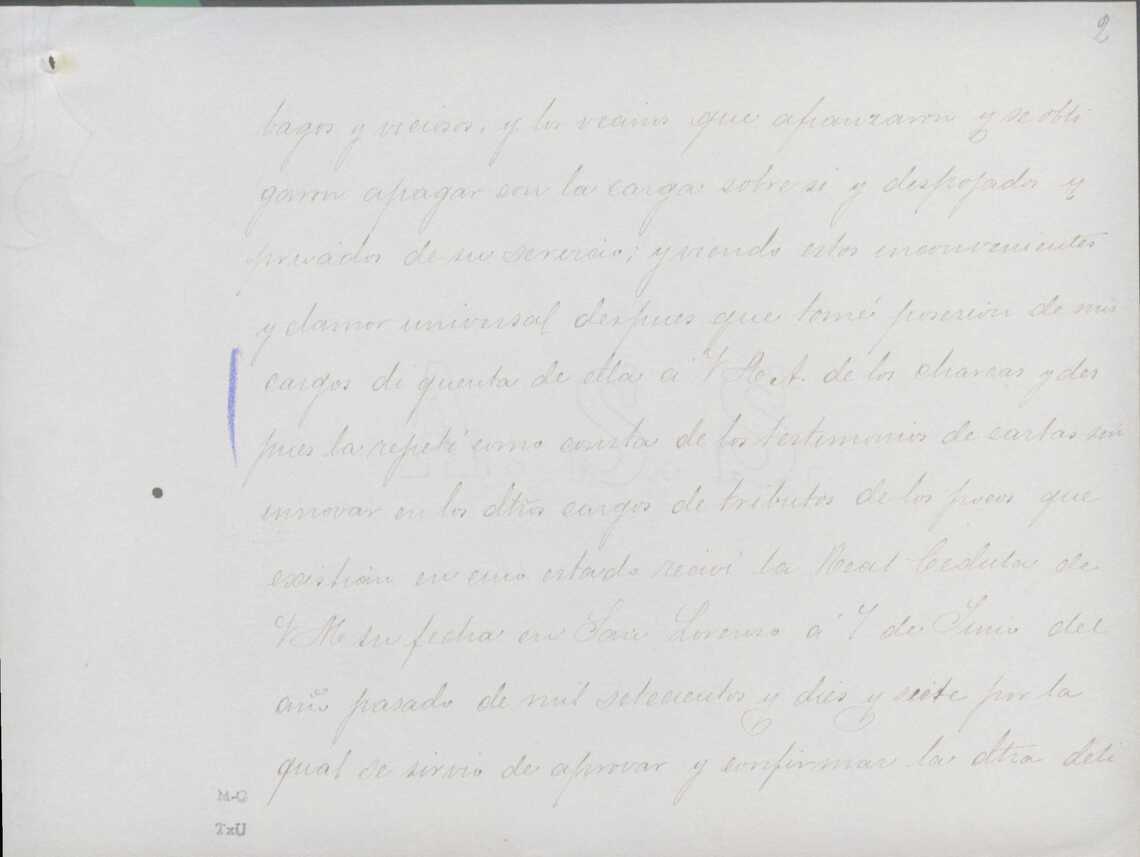 2
bagos y viciosos, y los vecinos que afianzaron y se obli
garon apagar con la carga sobre si y despojados y
privados de su servicio; y viendo estos inconvenientes
y clamor universal despues que tomé posesion de mis
cargos di quenta de ella á V. R. A. de los charcas y des
pues la repetí como consta de los testimonios de cartas sin
innovar en los dhos cargos de tributos de los pocos que
existian en cuio estado recivi la Real Cedula de
V M su fecha en San Lorenzo á 7 de Junio del
año pasado de mil setecientos y dies y siete por la
qual se sirvio de aprovar y confirmar la dha deli
M-G
TxU